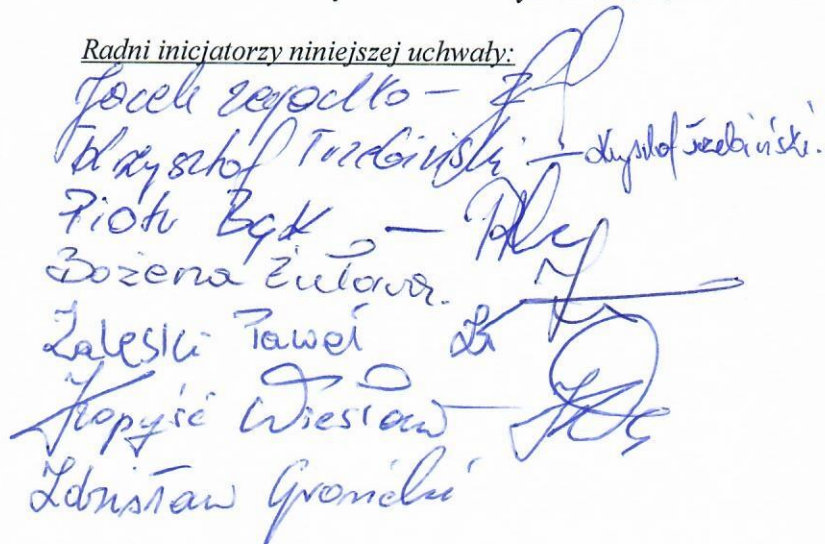 Radni inicjatorzy niniejszej uchwały:
Jacek Zegadło –
Krzysztof Trzebiński – Krzysztof Trzebiński.
Piotr Bąk –
Bożena Żuława.
Zaleski Paweł
Kopyść Wiesław –
Zdzisław